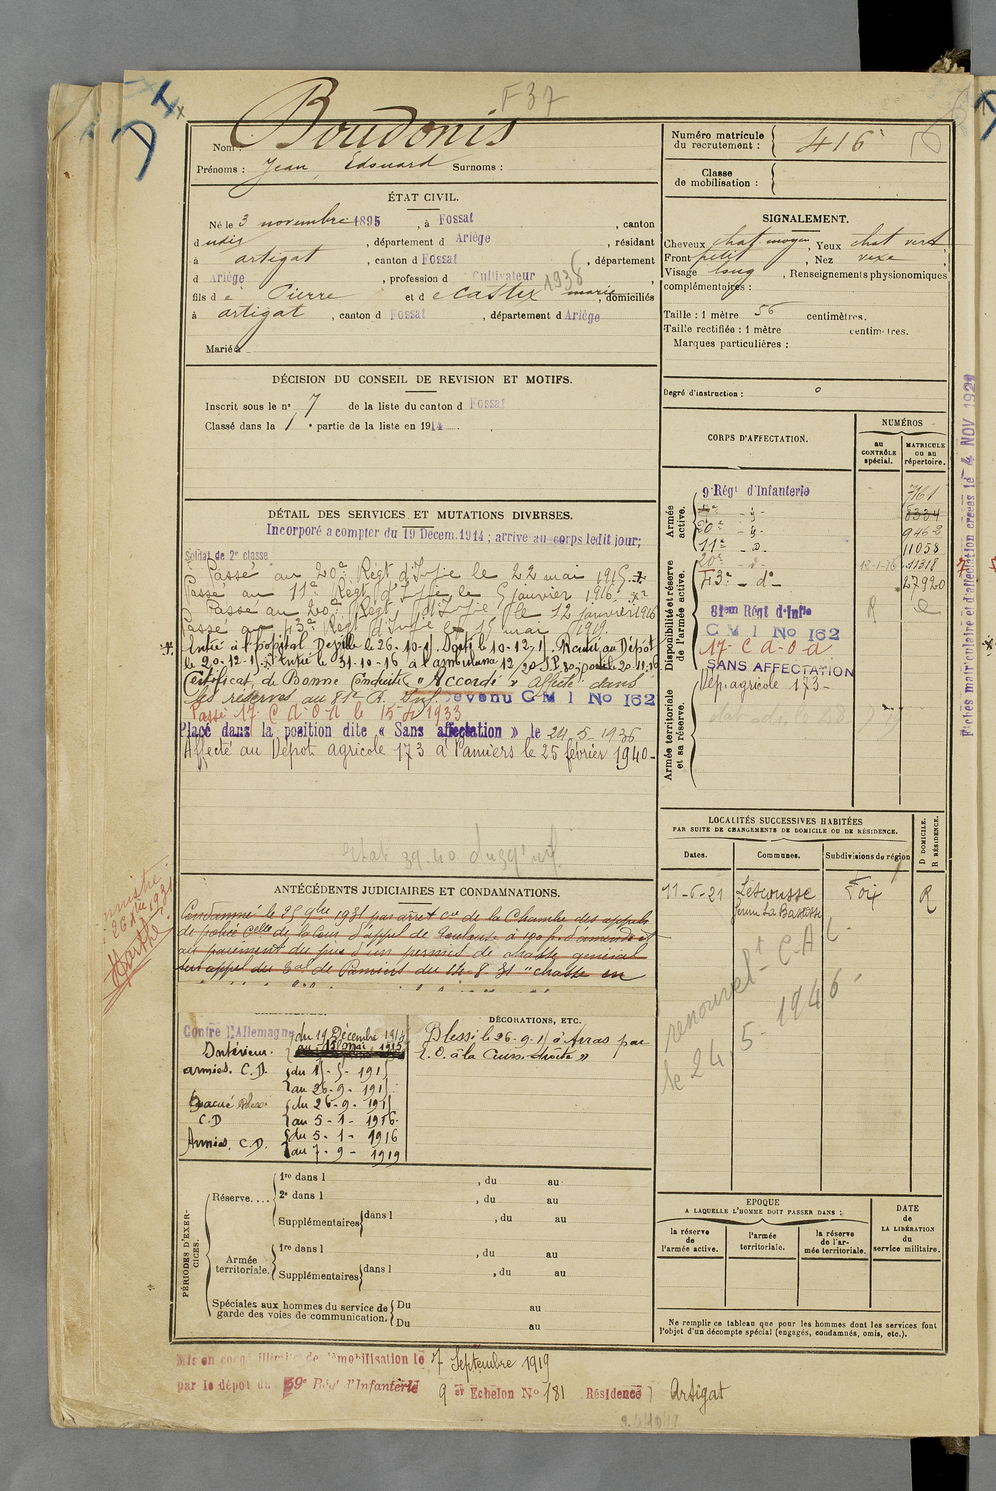 F 37
Nom : Boudonis
Prénoms : Jean, Edouard Surnoms :
ÉTAT CIVIL.
Né le 3 novembre 1895, à Fossat, canton
dudit, département d Ariège, résidant
à artigat, canton d Fossat, département
d Ariège, profession d Cultivateur
1938
fils de Pierre et de Castex marie, domiciliés
à artigat, canton d Fossat, département d Ariège
Marié à
DÉCISION DU CONSEIL DE REVISION ET MOTIFS.
Inscrit sous le n° 7 de la liste du canton d Fossat
Classé dans la 1re partie de la liste en 1914
DÉTAIL DES SERVICES ET MUTATIONS DIVERSES.
Incorporé a compter du 19 Décem. 1914 ; arrive au corps ledit jour;
Soldat de 2e classe
Passé au 20e Régt d'Infie le 22 mai 1915
Passé au 11e Régt d'Infie le 5 janvier 1916.
Passé au 20e Régt d'Infie le 12 janvier 1916
Passé au 43e Régt d'Infie le 15 mai 1919.
Entré à l'hôpital le 26-10-1 Sorti le 10-12-1. Rentré au Dépôt
le 20-12-1 Entré le 31-10-16 à l'ambulance 12/20
Certificat de Bonne Conduite « Accordé » Affecté dans
les réserves au 81e R. Inf. Devenu C M I No 162
Passé 17e C A O A le 15 1933
Placé dans la position dite « Sans affectation » le 24-5-1935
Affecté au Dépot agricole 173 à Pamiers le 25 février 1940-
Etat 39-40
ANTÉCÉDENTS JUDICIAIRES ET CONDAMNATIONS.
Condamné le 25 9bre 1931 par arrêt de la Chambre des appels
de police celle de la Cour d'appel de Toulouse à 100 f. d'amende et
au paiement du prix d'un permis de chasse général
sur appel du de Pamiers du 12-8-31 "chasse en
Contre l'Allemagne du 19 Décembre 1914
Intérieur. au 1915
armées. C.D. du 1915
au 26-9-191
Évacué blessé du 26-9-191
C.D au 5-1-1916.
Armées. C.D. du 5-1-1916
au 7-9-1919
DÉCORATIONS, ETC.
Blessé le 26-9-1 à Arras par
E. O. à la Cuisse droite »
PÉRIODES D'EXERCICES.
Réserve.... 1re dans l , du au
2e dans l , du au
Supplémentaires dans l , du au
Armée territoriale. 1re dans l , du au
Supplémentaires dans l , du au
Spéciales aux hommes du service de garde des voies de communication. Du au
Du au
Mis en congé illimité de démobilisation le 7 Septembre 1919
par le dépôt du 59e Régt d'Infanterie 9 er Echelon No 181 Résidence Artigat
Numéro matricule du recrutement : 416
Classe de mobilisation :
SIGNALEMENT.
Cheveux chat. moyen, Yeux chat vert
Front petit, Nez vexe
Visage long, Renseignements physionomiques
complémentaires :
Taille : 1 mètre 56 centimètres.
Taille rectifiée : 1 mètre centimètres.
Marques particulières :
Degré d'instruction : 0
CORPS D'AFFECTATION.
NUMÉROS
au CONTRÔLE spécial.
MATRICULE ou au répertoire.
Armée active.
9e Régt d'Infanterie 7161
8334
20e - d°- 9462
11e - d°- 11058
20e - d°- 12-1-16 11318
43e - d°- 27920
Disponibilité et réserve de l'armée active.
81em Régt d'Infie R
C M I No 162
17e C A O A
SANS AFFECTATION
Armée territoriale et sa réserve.
Dép. agricole 173-
LOCALITÉS SUCCESSIVES HABITÉES
PAR SUITE DE CHANGEMENTS DE DOMICILE OU DE RÉSIDENCE.
D DOMICILE.
R RÉSIDENCE.
Dates. Communes. Subdivisions de région
11-6-21 Lescousse Foix R
La Bastosse
renouvelt C.A.C.
le 24-5-1946
EPOQUE
A LAQUELLE L'HOMME DOIT PASSER DANS :
la réserve de l'armée active.
l'armée territoriale.
la réserve de l'armée territoriale.
DATE de LA LIBÉRATION du service militaire.
Ne remplir ce tableau que pour les hommes dont les services font
l'objet d'un décompte spécial (engagés, condamnés, omis, etc.).
Fiches matriculaire et d'affectation créées le 4 NOV 1929